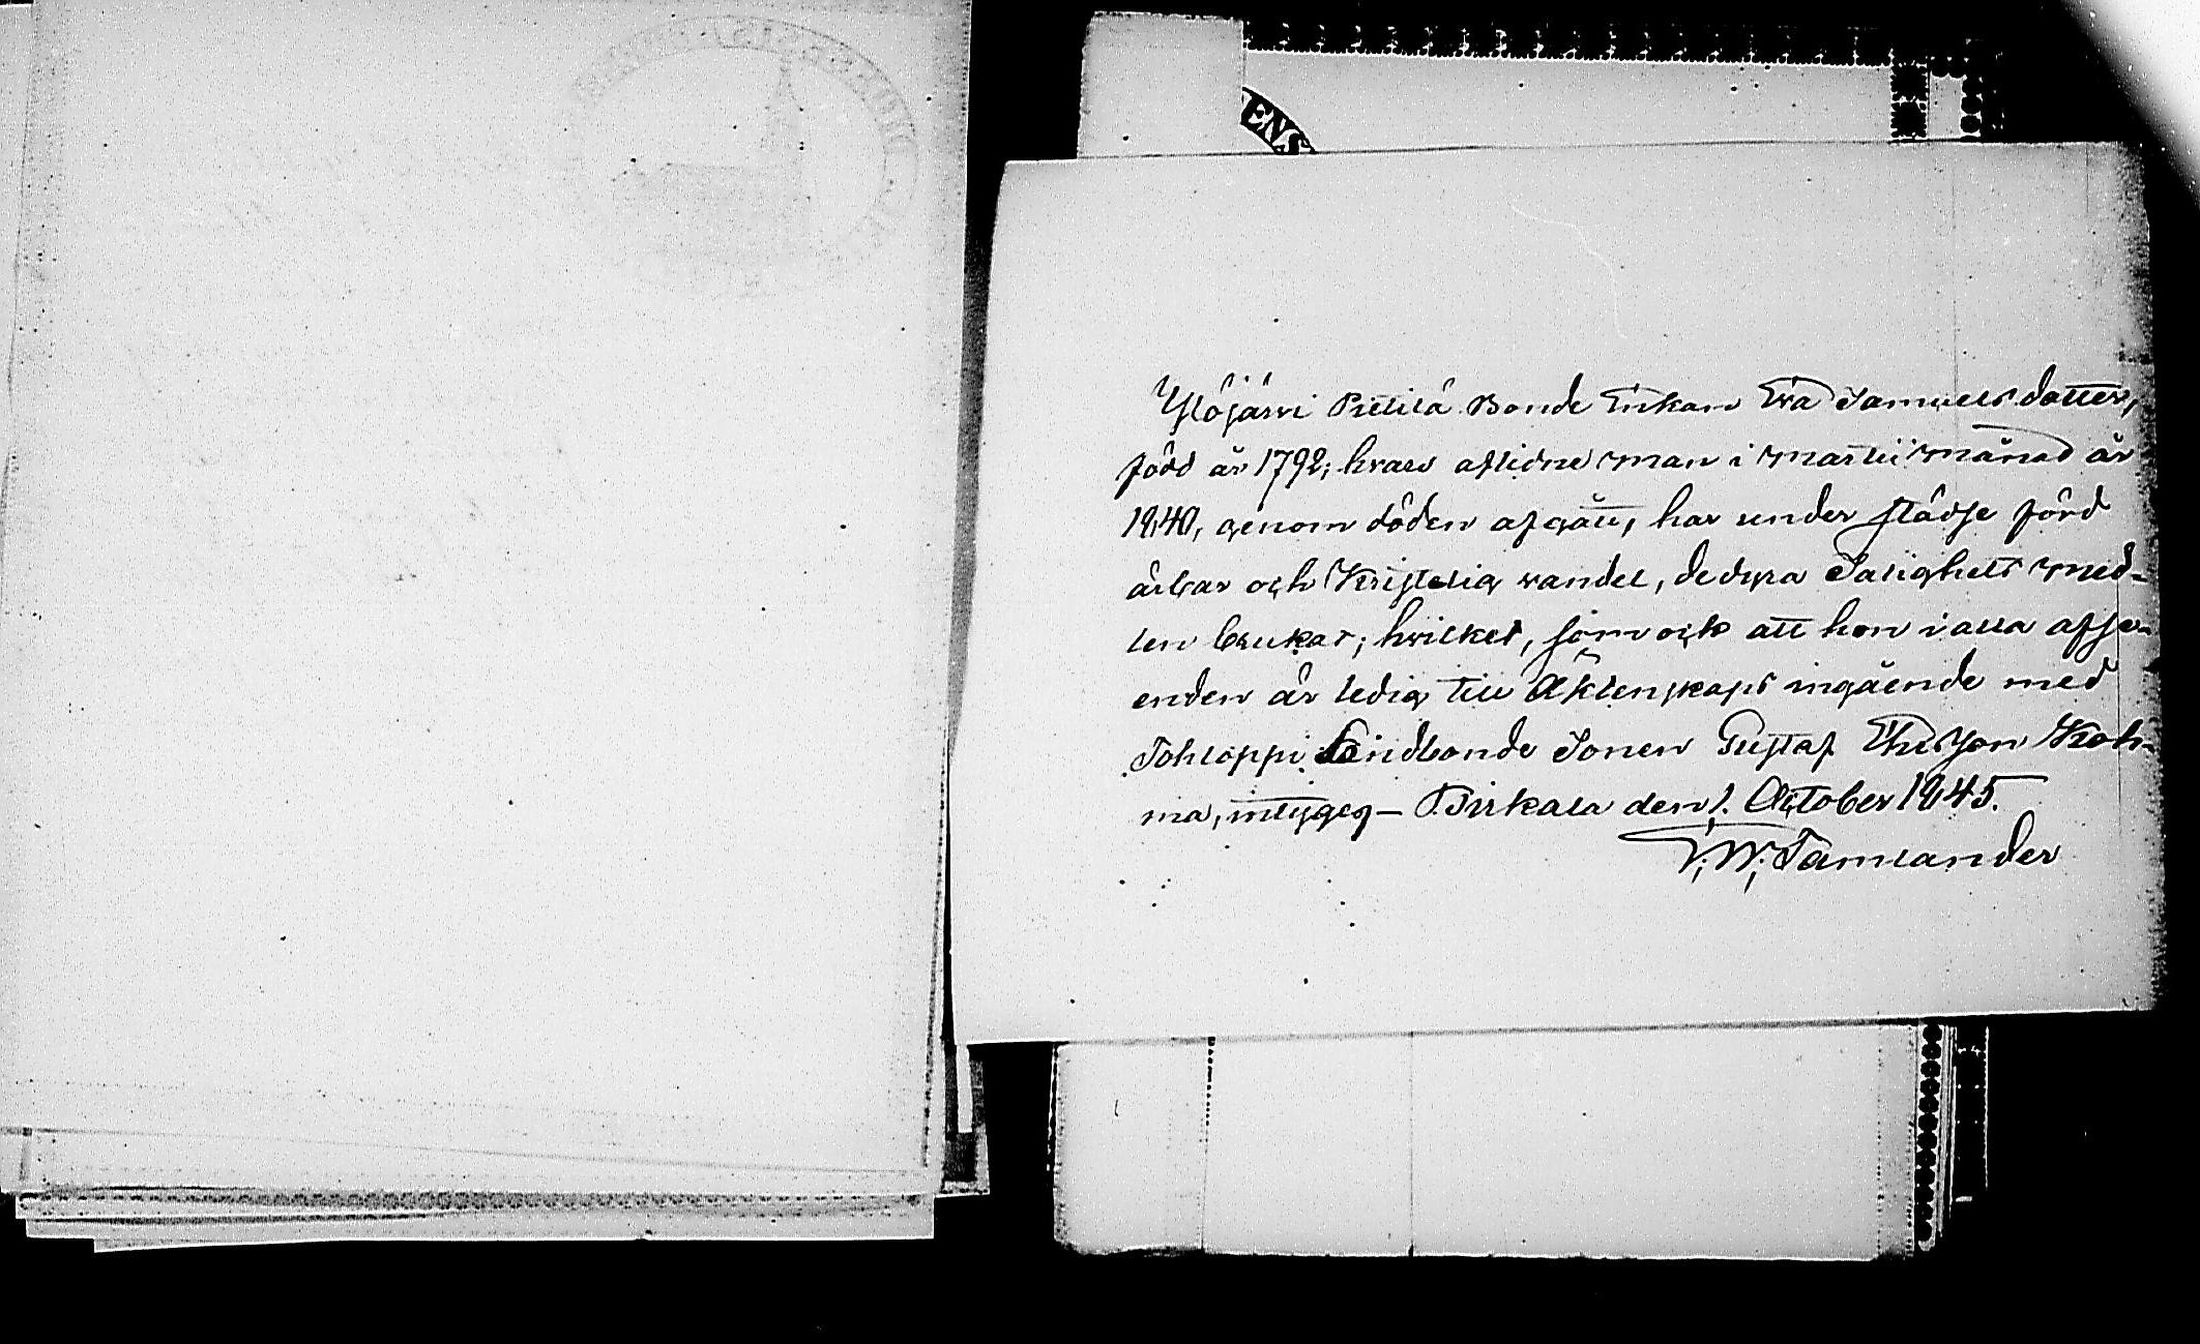 ENS
Ylöjärvi Pietilä Bonde Enkan Eva Samuelsdotter,
född år 1792; hvars aflidne man i martii månad år
1840, genom döden afgått, har under städse förd
ärbar och Kristelig vandel, de dyra Salighets med-
len brukat; hvilket, som ock att hon i alla afse-
enden är ledig till Äktenskaps ingående med
Tohloppi Landbonde Sonen Gustaf Koh-
ma, intygas – Birkala den 1. October 1845.
F. W. Tamlander